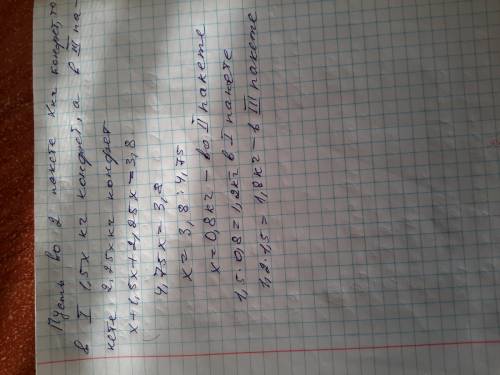 Пусть во 2 пакете xкг конфет, то
в I 1,5x кг конфет, а в III па-
кете 2,25xкг конфет
x+1,5x+2,25x=3,8
4,75x=3,8
x=3,8:4,75
x=0,8кг – во II пакете
1,5·0,8=1,2кг в I пакете
1,2·1,5=1,8кг – в III пакете